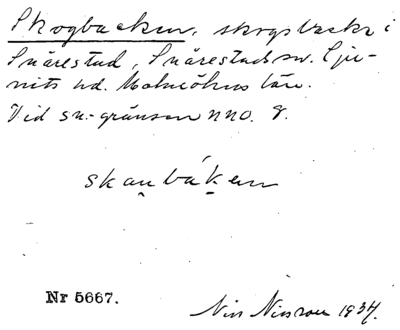 Skogbacken, skogsbacke i
Snårestad, Snårestads sn. Lju-
nits hd. Malmöhus län.
Vid sn.-gränsen nno. 8.
skaubákenn
Nr 5667.
Nils Nilsson 1937.